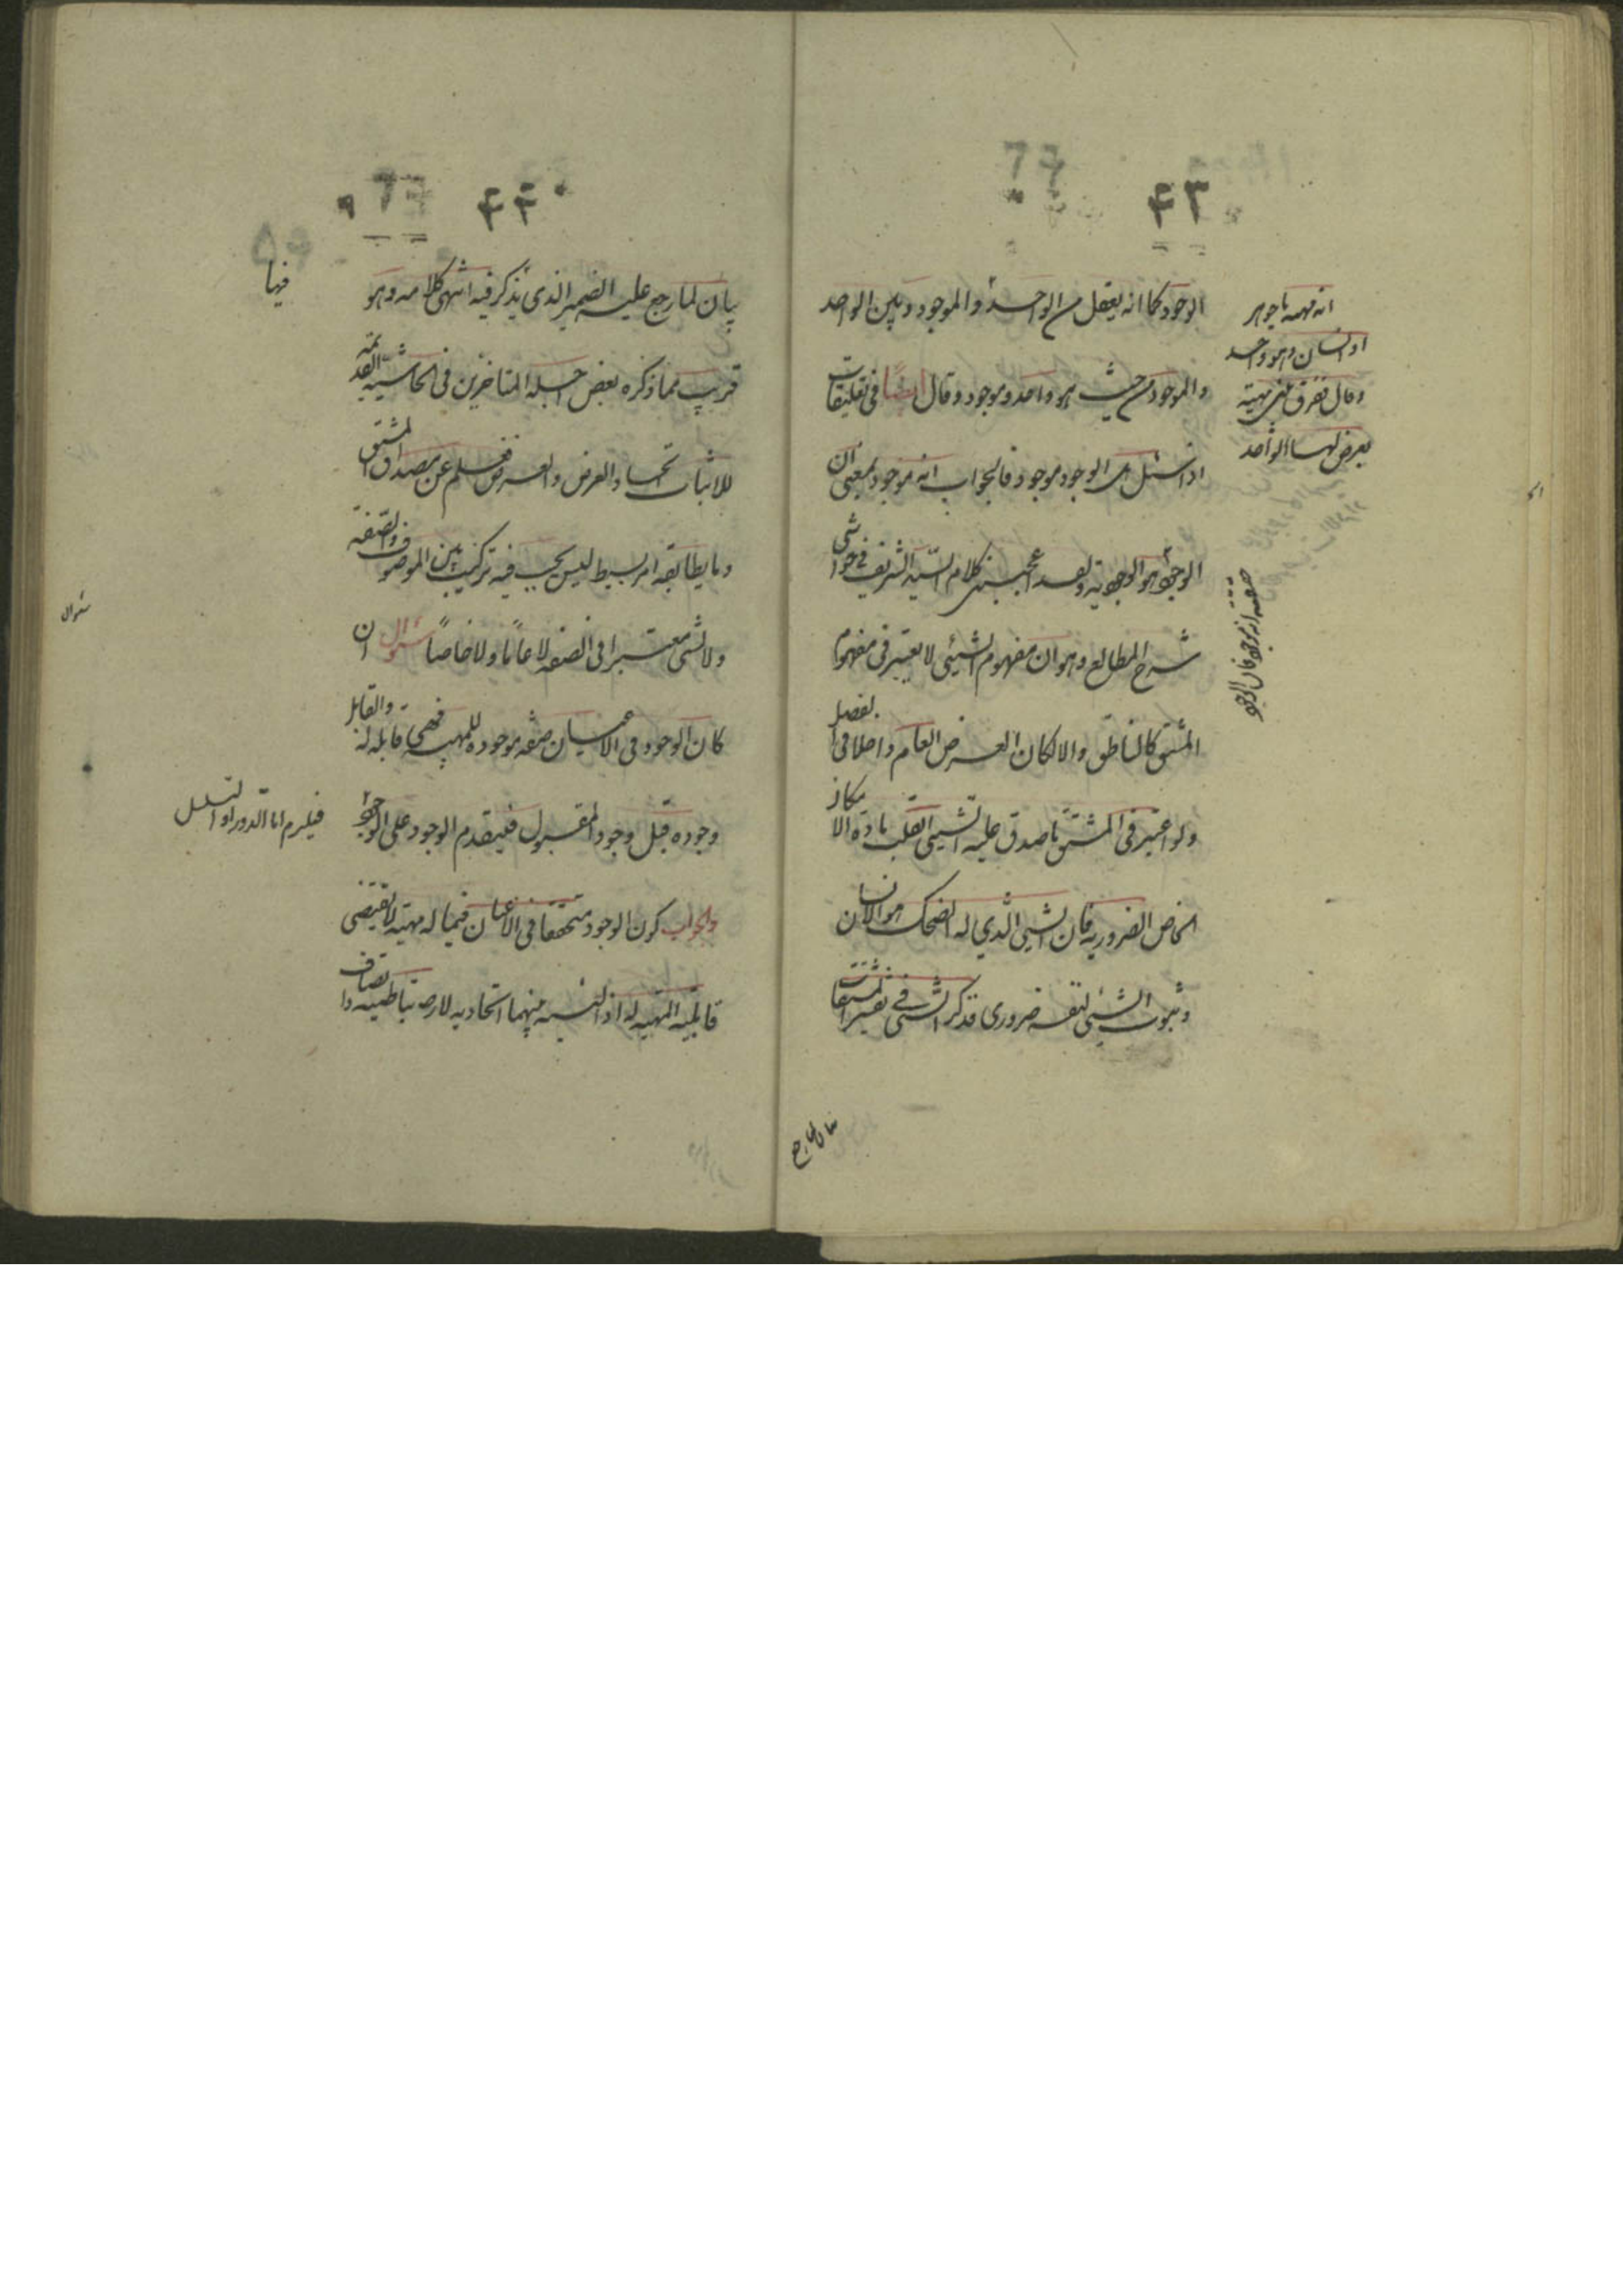 ٤٣
الوجود كما انه يعقل من الواحد والموجود وبين الواحد
والموجود من حيث هو واحد وموجود وقال ايضًا فى تعليقات
اذا سئل هل الوجود موجود فالجواب انه موجود بمعنى ان
الوجود هو الموجودية ولقد اعجبنى كلام السيد الشريف في حواشى
شرح المطالع وهو ان مفهوم الشيئى لا يعتبر فى مفهوم
المشتق كالناطق والا لكان العرض العام داخلا فى الفصل
ولو اعتبر فى المشتق ما صدق عليه الشيئى انقلب مادة الامكان
الخاص الضرورية فان الشيئى الذي له الضحك هو الانسان
وثبوت الشيئى لنفسه ضرورى فذكر الشئى في تفسير المشتقات
انه مهية ما جوهر
او انسان وهو واحد
وقال ففرق بين مهية
يعرض لها الواحد
حقيقته انه موجود فان الوجود
بيان لما رجع
٤٤
بيان لما رجع عليه الضمير الذى يذكر فيه انتهى كلامه وهو
قريب مما ذكره بعض اجلة المتاخرين فى الحاشية القديمة
لاثبات اتحاد العرض والعرضى فعلم عن مصداق المشتق
وما يطابقه امر بسيط ليس يجب فيه تركيب بين الموصوف والصفة
ولا الشئ معتبرا فى الصفة لا عامًا ولا خاصاً سؤال ان
كان الوجود فى الاعيان صفة موجودة للمهية فهى قابلة له والقابل
وجوده قبل وجود المقبول فيتقدم الوجود على الوجود
والجواب كون الوجود متحققا فى الاعيان فيما له مهية لا يقتضى
قابلية المهية له اذ النسبة بينهما اتحادية لا ارتباطية واتصاف
فيها
سؤال
فيلزم اما الدور او التسلسل